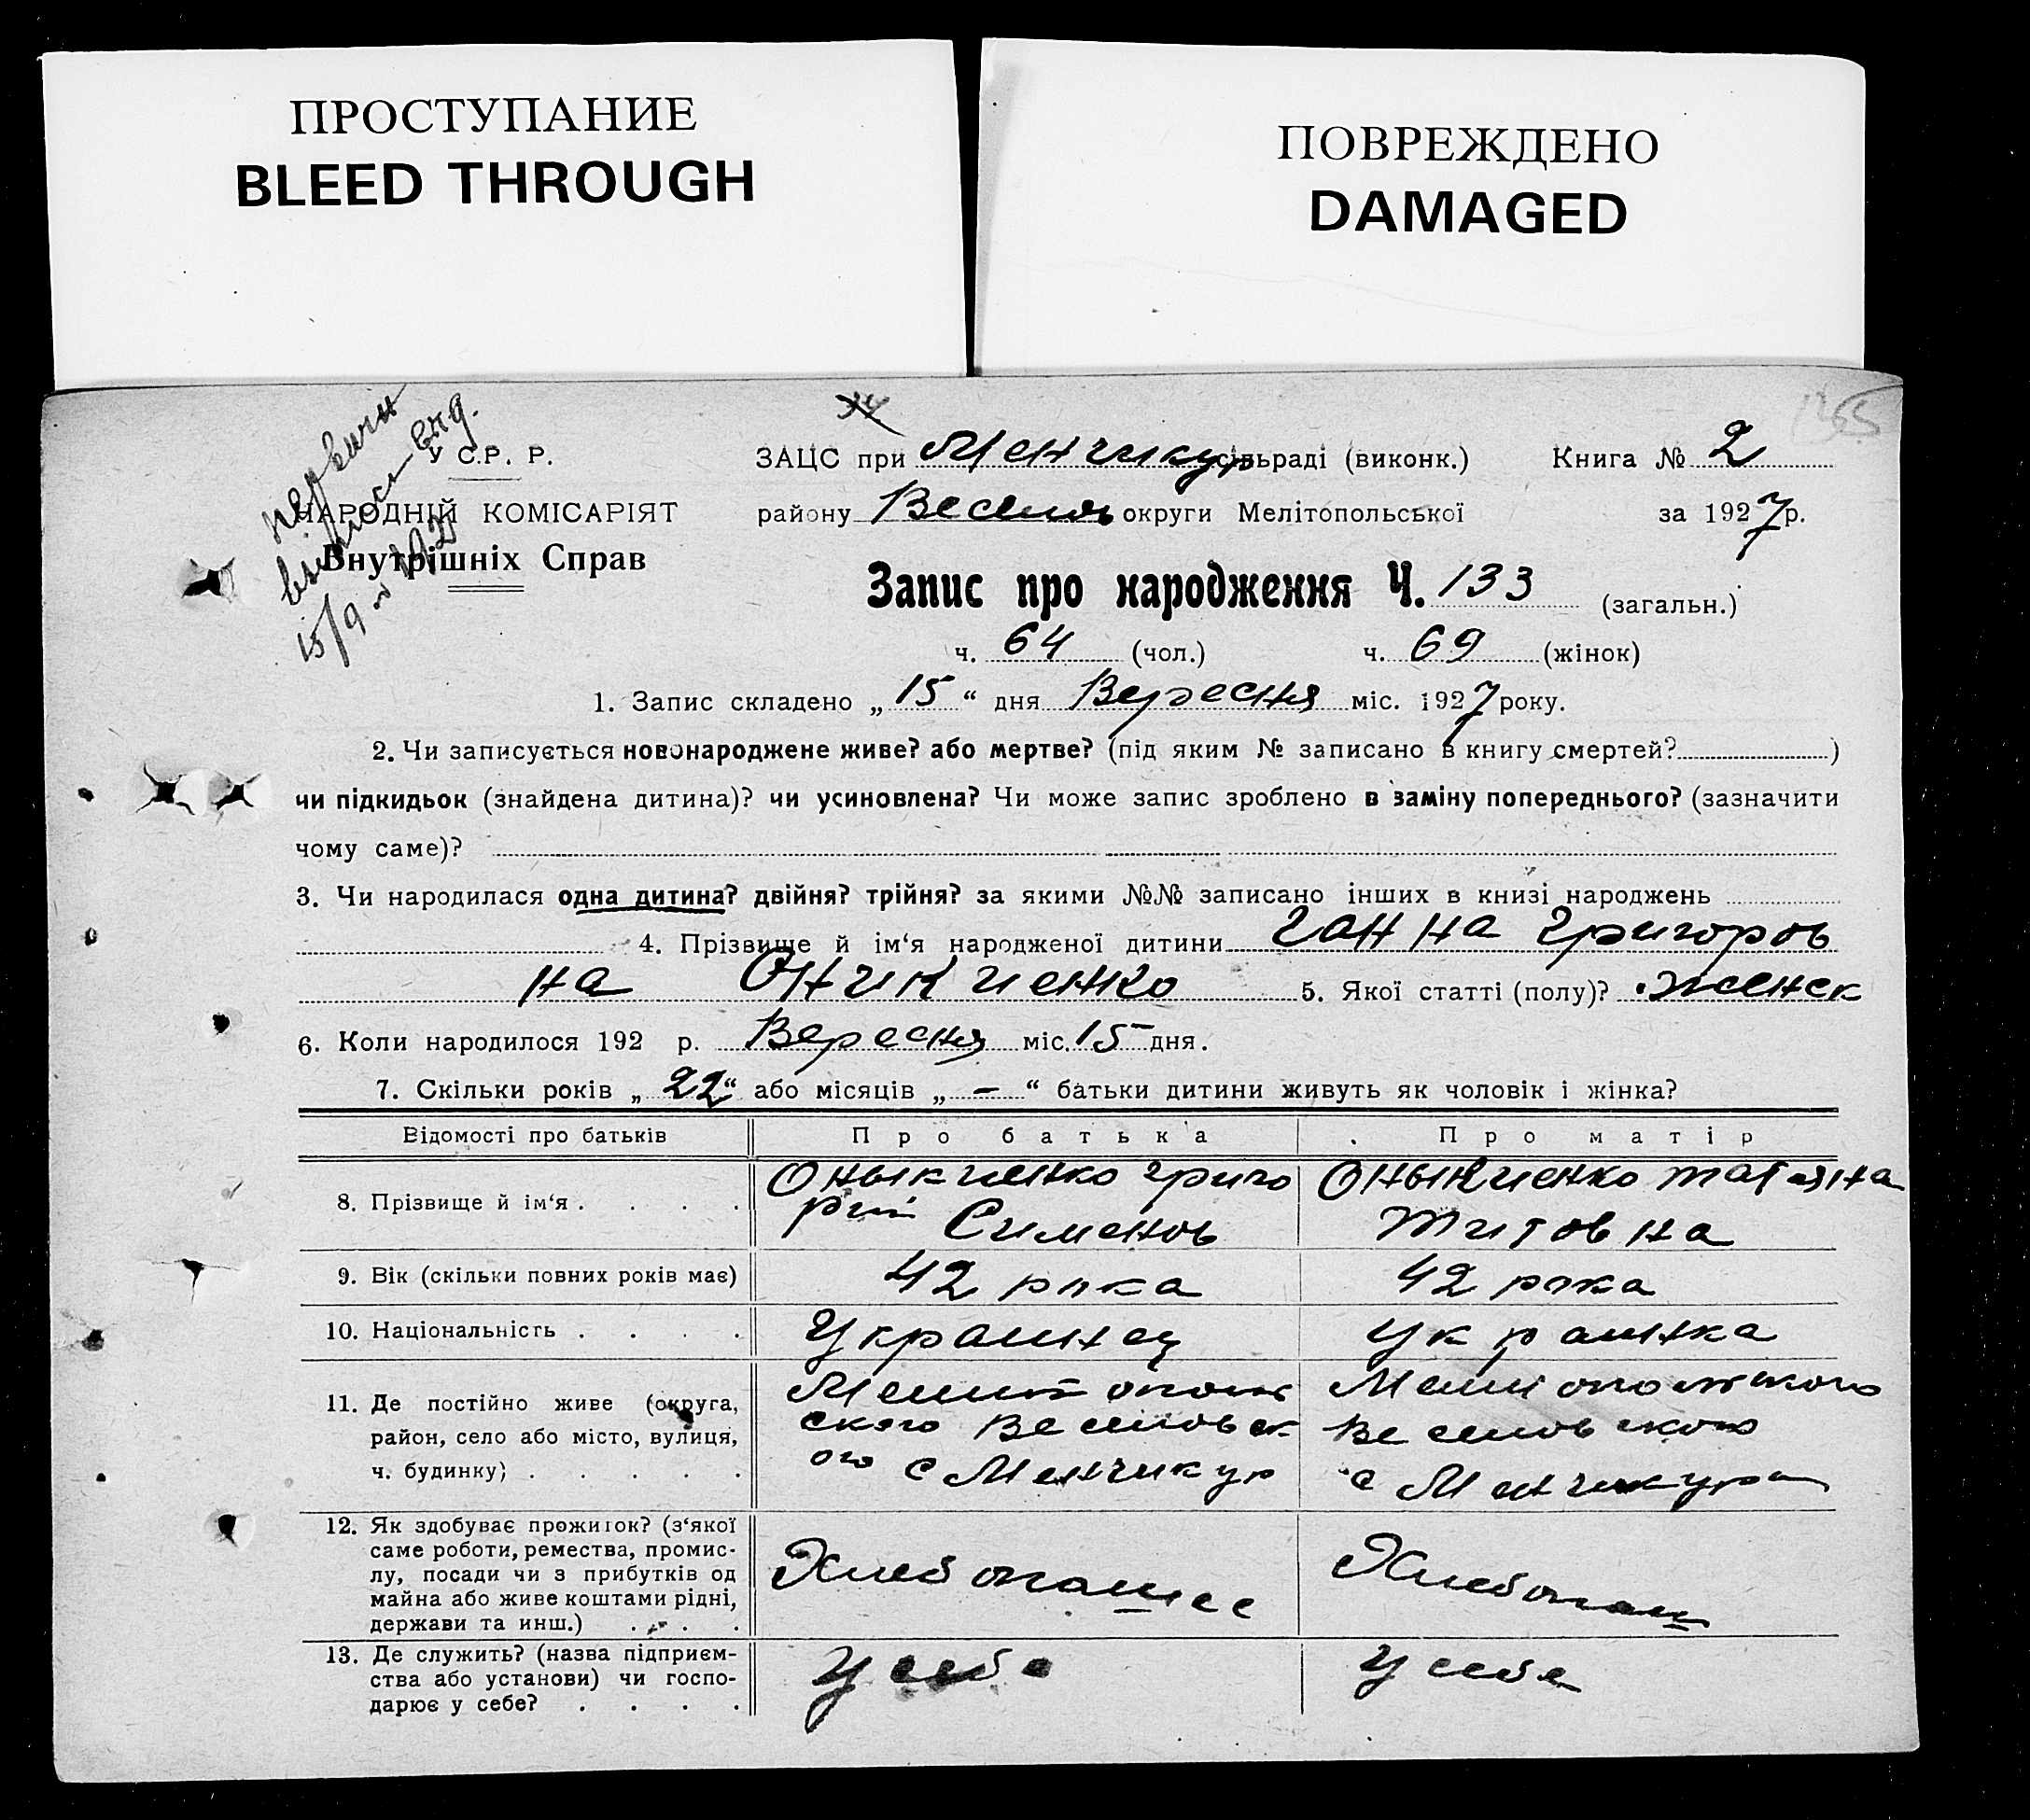 ПРОСТУПАНИЕ
BLEED THROUGH
ПОВРЕЖДЕНО
DAMAGED
У.С.Р. Р.
НАРОДНІЙ КОМІСАРІЯТ
Внутрішніх Справ
15/9
ЗАЦС при Менчикур сільраді (виконк.) Книга № 2
району Весел округи Мелітопольської за 1927 р.
Запис про народження Ч. 133 (загальн.)
ч. 64 (чол.) ч. 69 (жінок)
1. Запис складено „ 15 “ дня Вересня міс. 1927 року.
2. Чи записується новонароджене живе? або мертве? (під яким № записано в книгу смертей? )
чи підкидьок (знайдена дитина)? чи усиновлена? Чи може запис зроблено в заміну попереднього? (зазначити
чому саме)?
3. Чи народилася одна дитина? двійня? трійня? за якими №№ записано інших в книзі народжень
4. Прізвище й ім‘я народженої дитини Ганна Григоров
на Оникиенко 5. Якої статті (полу)? женск
6. Коли народилося 192 р. Вересня міс. 15 дня.
7. Скільки років „ 22 “ або місяців „ – “ батьки дитини живуть як чоловік і жінка?
Відомості про батьків Про батька Про матір
8. Прізвище й ім‘я . . . .
Оныкиенко Григо
рий Сименов
Оныкиенко Татяна
Титовна
9. Вік (скільки повних років має) 42 рока 42 рока
10. Національність . . . . Украинец Украинка
11. Де постійно живе (округа,
район, село або місто, вулиця,
ч. будинку) . . . . .
Мелитополь
ского Веселовск
ого с Менчикур
Мелитопольского
Веселовского
с Менчикура
12. Як здобуває прожиток? (з‘якої
саме роботи, ремества, промис-
лу, посади чи з прибутків од
майна або живе коштами рідні,
держави та инш.) . . . .
Хлебопаш
13. Де служить? (назва підприєм-
ства або установи) чи госпо-
дарює у себе? . . . .
У себе
У себе